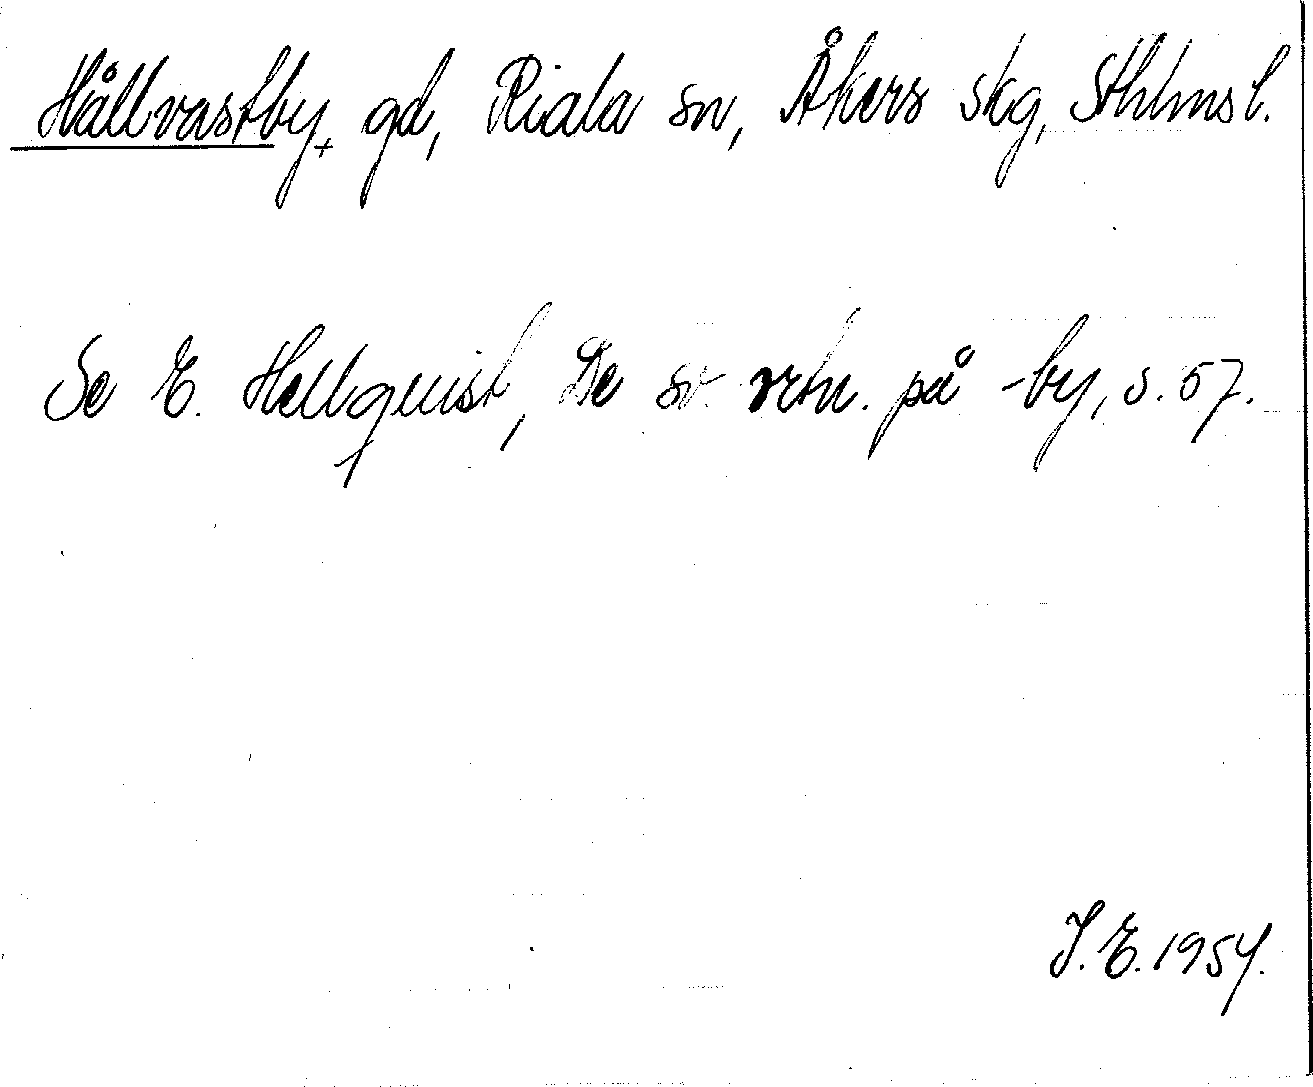 Hållvastby, gd, Riala sn, Åkers skg, Sthlms l.
Se E. Hellquist, De sv. ortn. på -by, s. 57.
I. E. 1954.